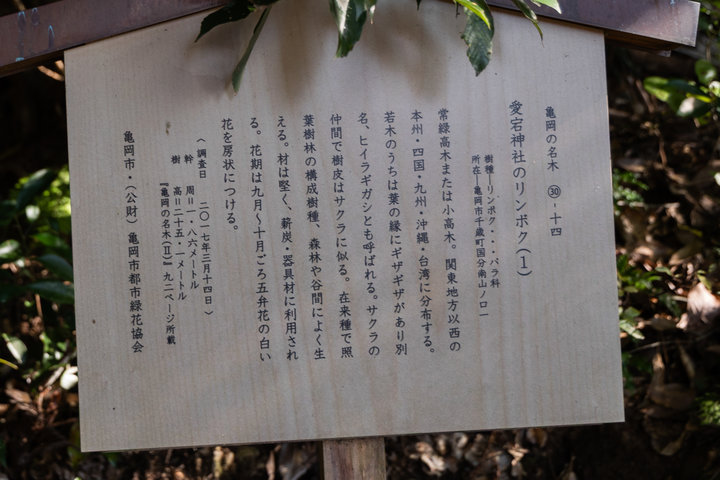 亀岡の名木　㉚-十四
愛宕神社のリンボク(1)
樹種＝リンボク・・・バラ科
所在＝亀岡市千歳町国分南山ノ口一
常緑高木または小高木。関東地方以西の
本州・四国・九州・沖縄・台湾に分布する。
若木のうちは葉の縁にギザギザがあり別
名、ヒイラギガシとも呼ばれる。サクラの
仲間で樹皮はサクラに似る。在来種で照
葉樹林の構成樹種、森林や谷間によく生
える。材は堅く、薪炭・器具材に利用され
る。花期は九月〜十月ごろ五弁花の白い
花を房状につける。
（調査日　二〇一七年三月十四日）
幹　周＝一・八六メートル
樹　高＝二十五・一メートル
『亀岡の名木(Ⅱ)』九二ページ所載
亀岡市・(公財)亀岡市都市緑花協会